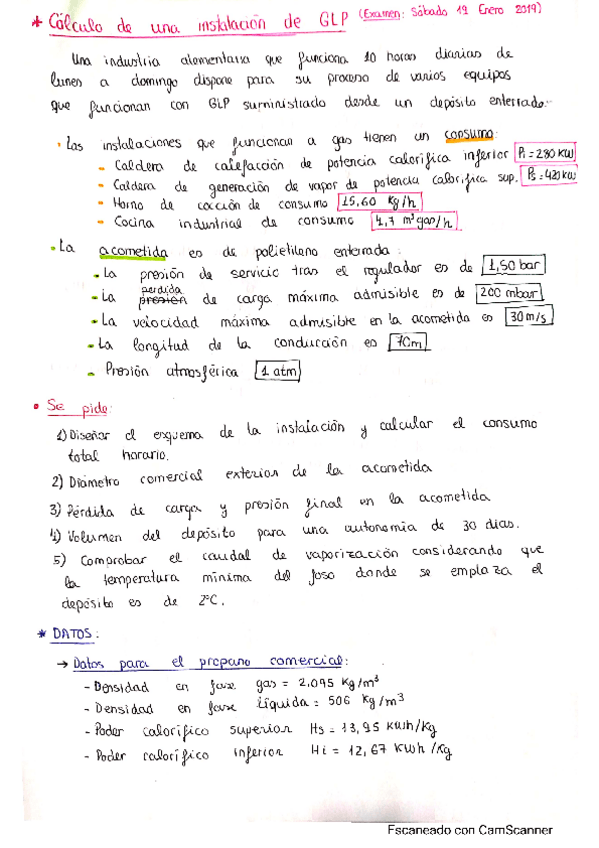 * Cálculo de una instalación de GLP (Examen: Sábado 19 Enero 2019)
Una industria alimentaria que funciona 10 horas diarias de
lunes a domingo dispone para su proceso de varios equipos
que funcionan con GLP suministrado desde un depósito enterrado:
· Las instalaciones que funcionan a gas tienen un consumo:
- Caldera de calefacción de potencia calorífica inferior Pi = 280 kW
- Caldera de generación de vapor de potencia calorífica sup. Ps = 420 kW
- Horno de cocción de consumo 15,60 kg/h
- Cocina industrial de consumo 4,7 m³gas/h
· La acometida es de polietileno enterrada:
- La presión de servicio tras el regulador es de 1,50 bar
- La perdida de carga máxima admisible es de 200 mbar
- La velocidad máxima admisible en la acometida es 30 m/s
- La longitud de la conducción es 70m
- Presión atmosférica 1 atm
• Se pide:
1) Diseñar el esquema de la instalación y calcular el consumo
total horario.
2) Diámetro comercial exterior de la acometida
3) Pérdida de carga y presión final en la acometida
4) Volumen del depósito para una autonomía de 30 días.
5) Comprobar el caudal de vaporización considerando que
la temperatura mínima del foso donde se emplaza el
depósito es de 2°C.
* DATOS:
→ Datos para el propano comercial:
- Densidad en fase gas = 2,095 kg/m³
- Densidad en fase líquida = 506 kg/m³
- Poder calorífico superior Hs = 13,95 kWh/kg
- Poder calorífico inferior Hi = 12,67 kWh/kg
Escaneado con CamScanner